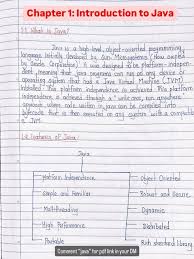 Chapter 1: Introduction to Java
1.1 What is Java?
Java is a high-level, object-oriented programming
language initially developed by Sun Microsystems (now owned
by Oracle Corporation). It was designed to be platform-independent, meaning that java programs can run on any device or
operating system that has a Java Virtual Machine (JVM)
installed. This platform independence is achieved
through a "write once, run anywhere"
approach, where Java code is compiled into
bytecode that is then executed on any system with a compatible
JVM.
1.2 Features of Java:
Java
Platform Independence
Object Oriented
Simple and Familiar
Robust and Secure
Multi-threading
Dynamic
High Performance
Distributed
Portable
Rich standard library
Comment "java" for pdf link in your DM